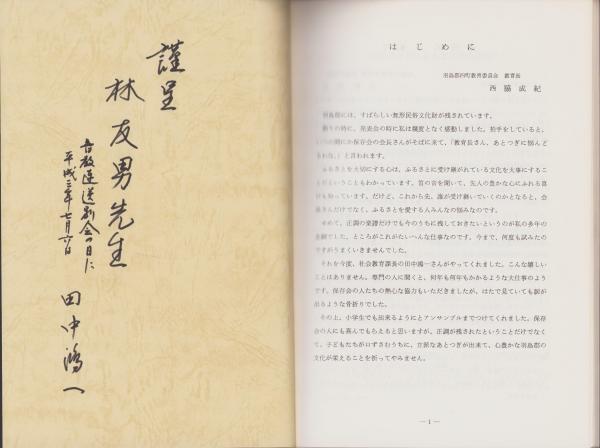 謹呈
林友男先生
音教連送別会の日に
平成三年七月六日
田中鴻一
はじめに
羽島郡四町教育委員会　教育長
西脇成紀
羽島郡には、すばらしい無形民俗文化財が残されています。
祭りの時に、発表会の時に私は幾度となく感動しました。拍手をしていると、
いつの間にか保存会の会長さんがそばに来て、「教育長さん、あとつぎに悩んど
るわな」と言われます。
ふるさとを大切にする心は、ふるさとに受け継がれている文化を大事にするこ
とだということもわかっています。笛の音を聞いて、先人の豊かな心にふれる喜び
も知っています。だけど、これから先、誰が受け継いでいくのかとなると、会
長さんだけでなく、ふるさとを愛する人みんなの悩みなのです。
せめて、正調の楽譜だけでも今のうちに残しておきたいというのが私の多年の
念願でした。ところがこれがたいへんな仕事なのです。今まで、何度も試みたの
ですがうまくいきませんでした。
それを今度、社会教育課長の田中鴻一さんがやってくれました。こんな嬉しい
ことはありません。専門の人に聞くと、何年も何年もかかるような大仕事のよう
です。保存会の人たちの熱心な協力もいただきましたが、はたで見ていても涙が
出るような骨折りでした。
その上、小学生でも出来るようにとアンサンブルまでつけてくれました。保存
会の人にも喜んでもらえると思いますが、正調が残されたということだけでなく
て、子どもたちが口ずさむうちに、立派なあとつぎが出来て、心豊かな羽島郡の
文化が栄えることを祈ってやみません。
—1—